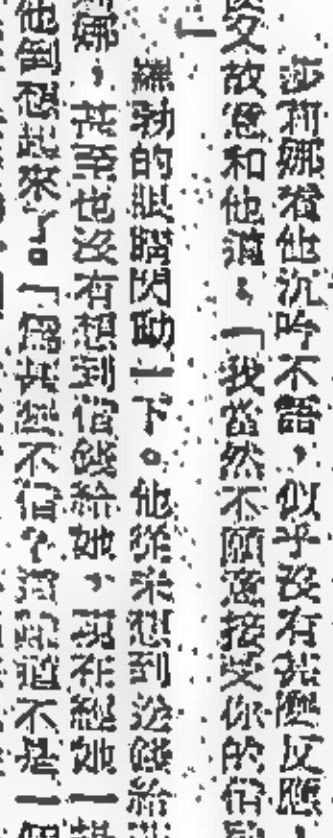 莎莉娜看他沉吟不語，似乎沒有甚麼反應，
又故意和他道：「我當然不願意接受你的借
」
羅勃的眼睛閃動一下。他從未想到送錢給
娜，甚至也沒有想到借錢給她，現在經她一
他倒想起來了。「為甚麼不借？這說道不是一個